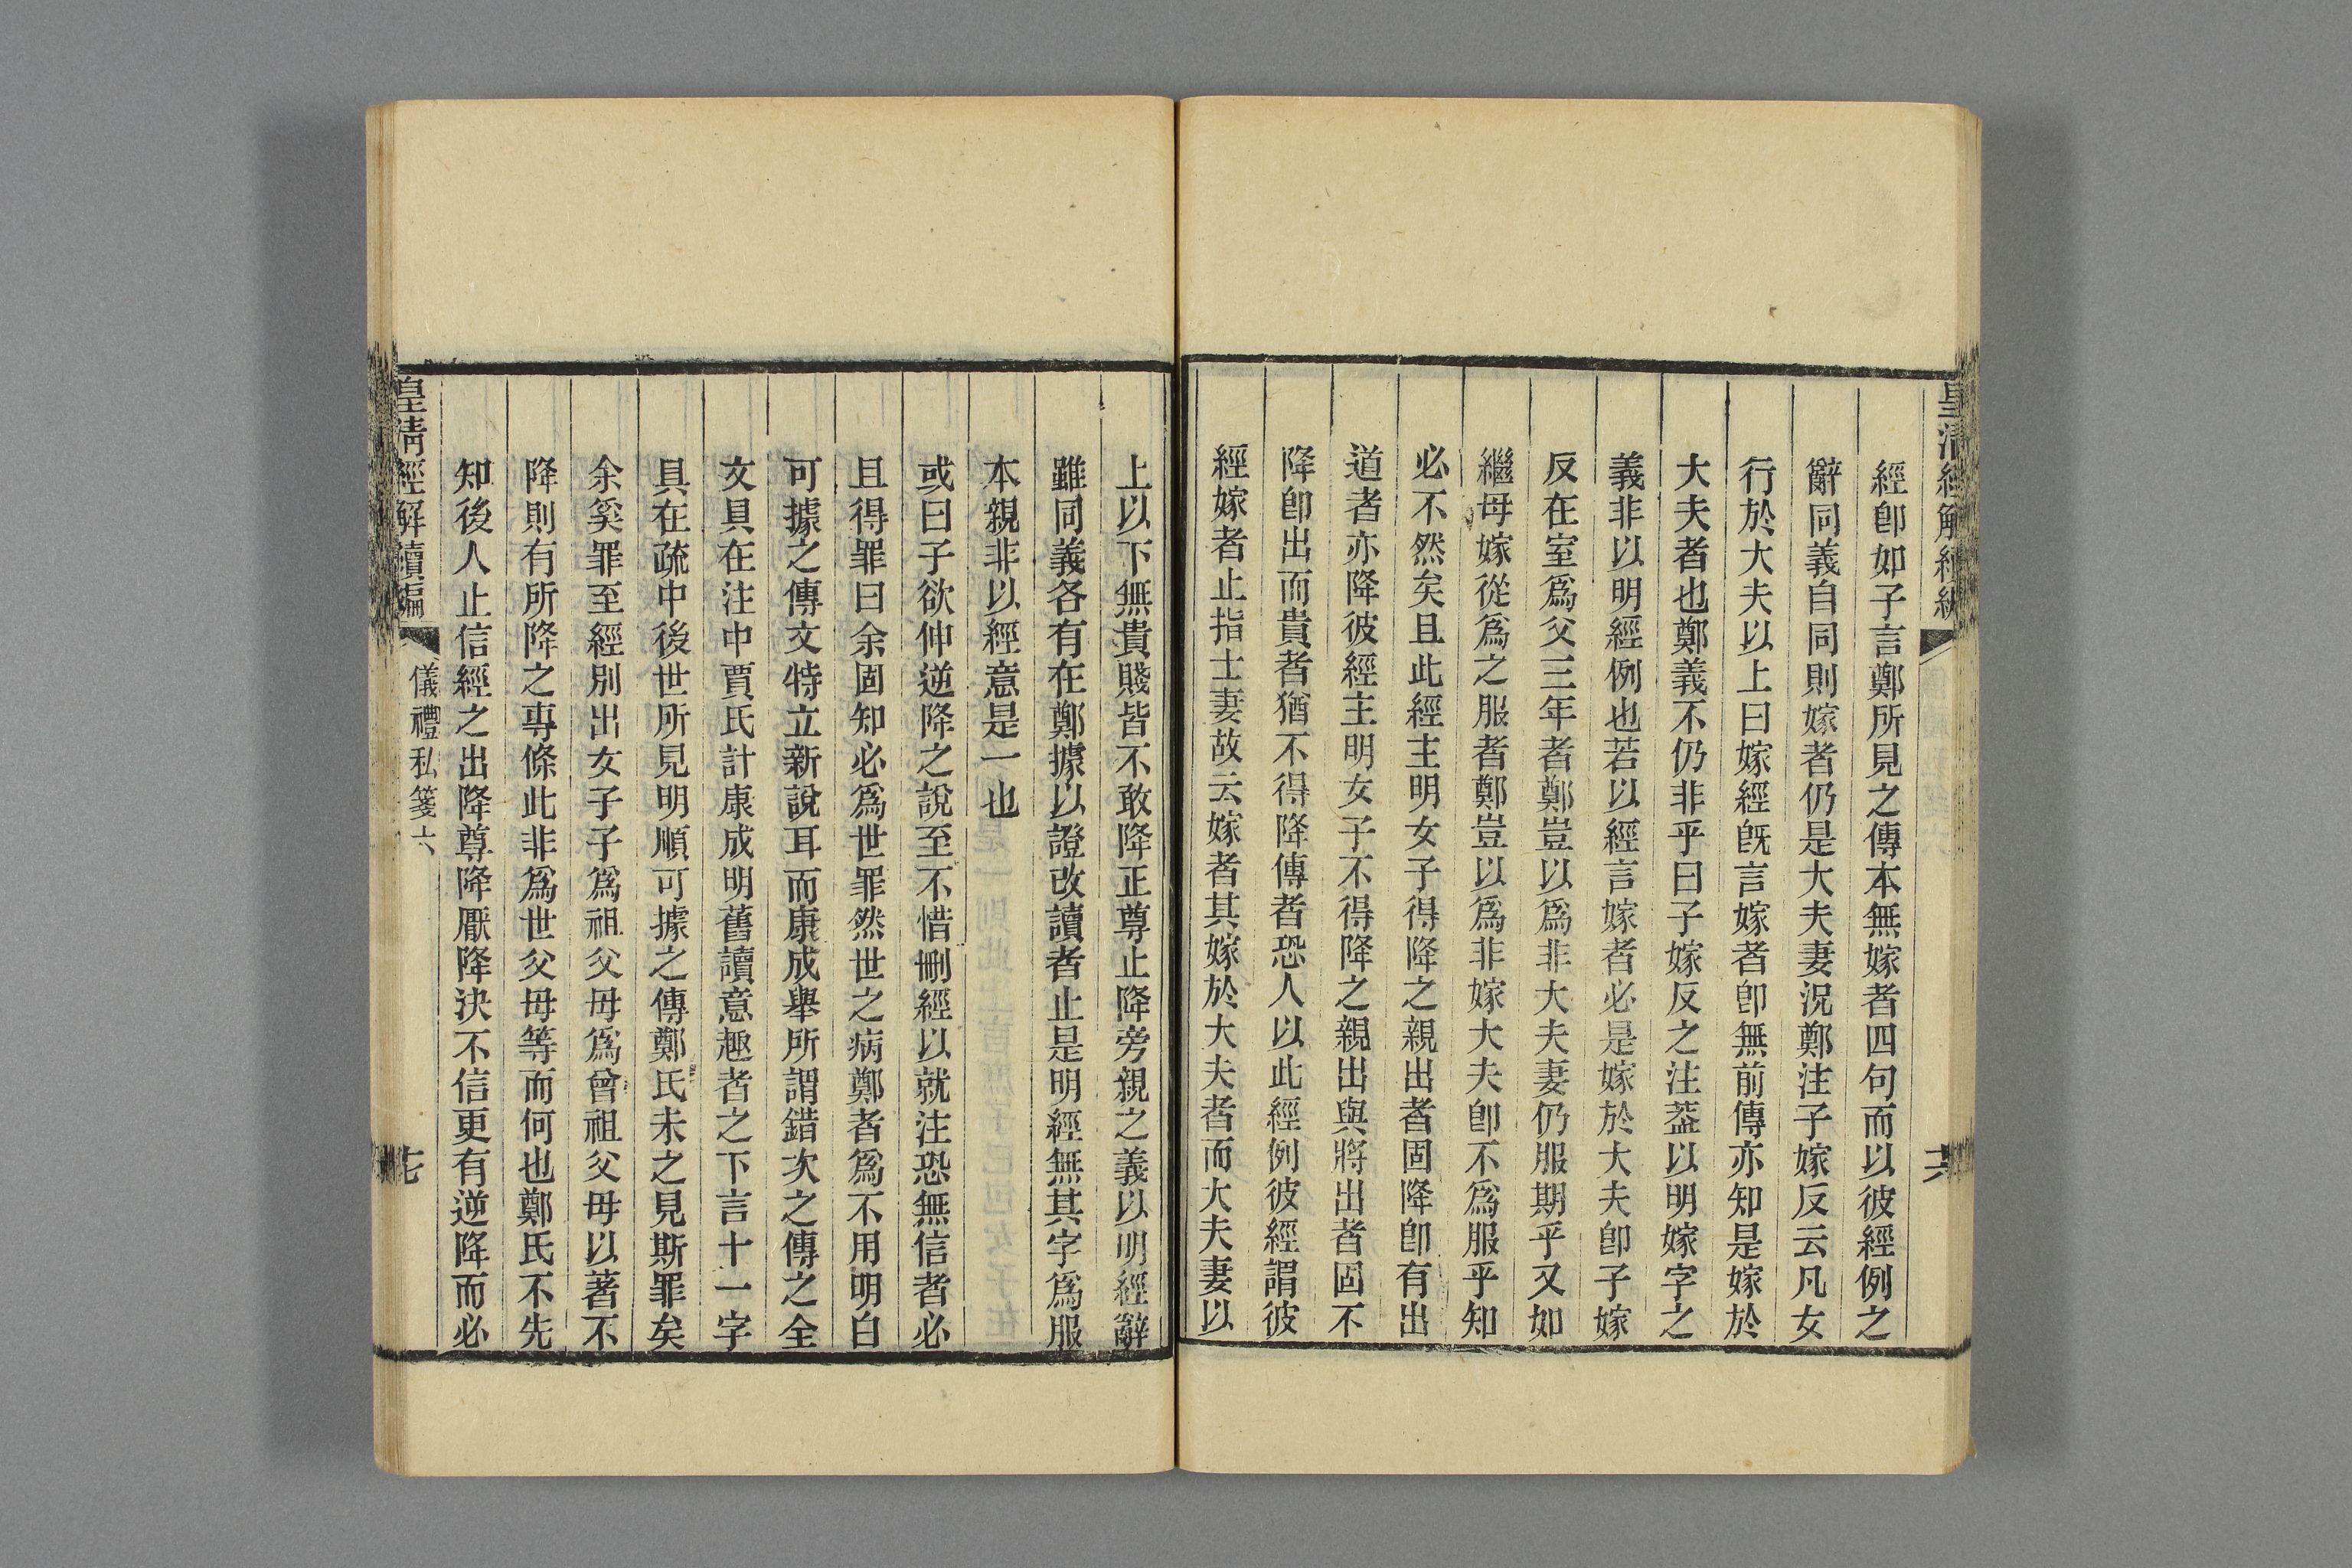 皇清經解續編
經卽如子言鄭所見之傳本無嫁者四句而以彼經例之
辭同義自同則嫁者仍是大夫妻況鄭注子嫁反云凡女
行於大夫以上曰嫁經旣言嫁者卽無前傳亦知是嫁於
大夫者也鄭義不仍非乎曰子嫁反之注葢以明嫁字之
義非以明經例也若以經言嫁者必是嫁於大夫卽子嫁
反在室爲父三年者鄭豈以爲非大夫妻仍服期乎又如
繼母嫁從爲之服者鄭豈以爲非嫁大夫卽不爲服乎知
必不然矣且此經主明女子得降之親出者固降卽有出
道者亦降彼經主明女子不得降之親出與將出者固不
降卽出而貴者猶不得降傳者恐人以此經例彼經謂彼
經嫁者止指士妻故云嫁者其嫁於大夫者而大夫妻以
上以下無貴賤皆不敢降正尊止降旁親之義以明經辭
雖同義各有在鄭據以證改讀者止是明經無其字爲服
本親非以經意是一也
或曰子欲伸逆降之說至不惜刪經以就注恐無信者必
且得罪曰余固知必爲世罪然世之病鄭者爲不用明白
可據之傳文特立新說耳而康成舉所謂錯次之傳之全
文具在注中賈氏計康成明舊讀意趣者之下言十一字
具在疏中後世所見明順可據之傳鄭氏未之見斯罪矣
余奚罪至經別出女子子爲祖父母爲曾祖父母以著不
降則有所降之專條此非爲世父母等而何也鄭氏不先
知後人止信經之出降尊降厭降決不信更有逆降而必
皇清經解續編
儀禮私箋六